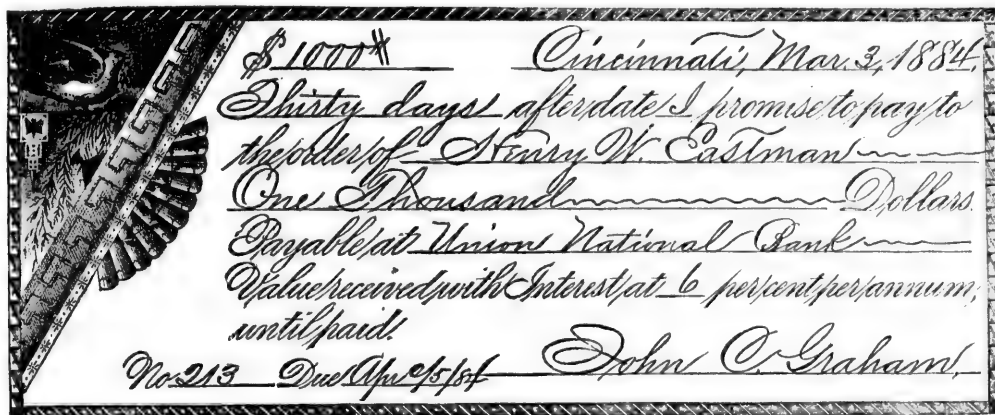 $1000 Cincinnati, Mar. 3, 1884.
Thirty days after date I promise to pay to
the order of Henry W. Eastman
One Thousand Dollars
Payable at Union National Bank
Value received with Interest at 6 per cent per annum,
until paid.
No 213 Due Apr 2/5/84 John C. Graham.